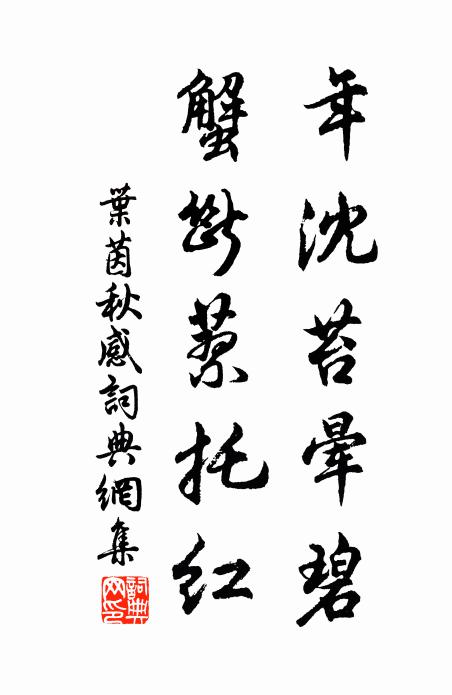 年沈苔暈碧
蟹斷蓼托紅
葉茵秋感詞典網集
詞典
网印